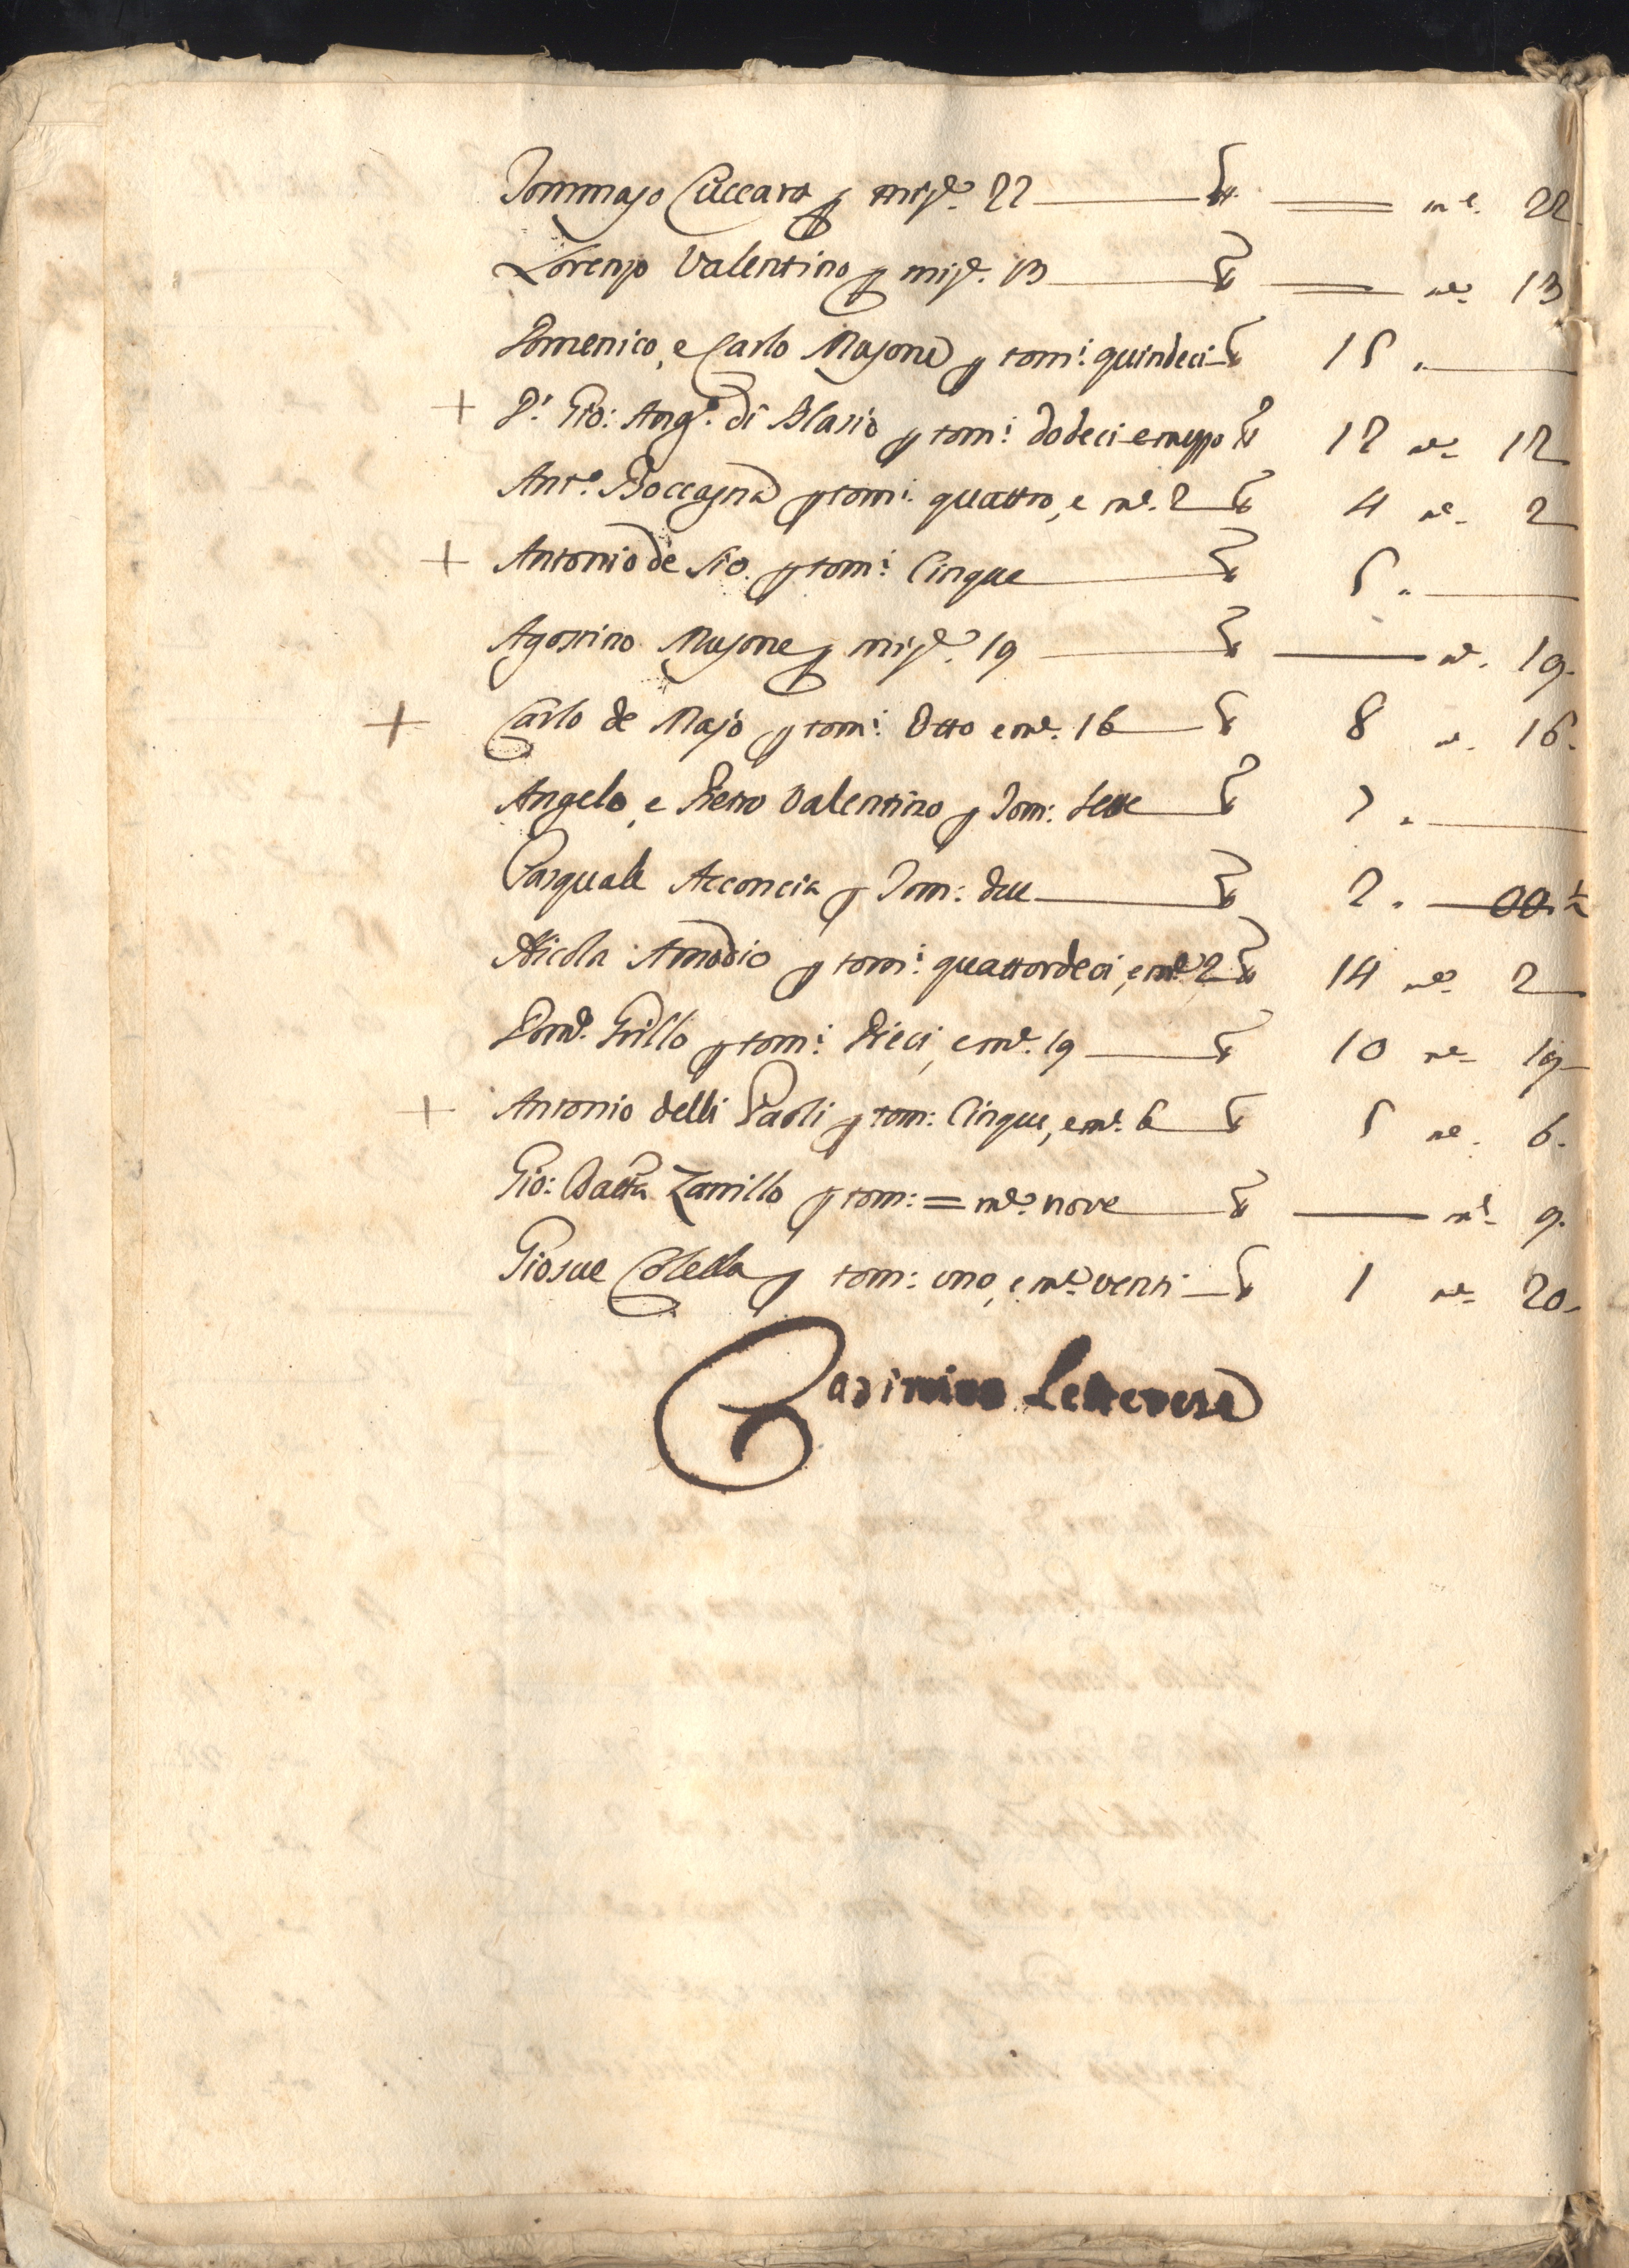 Tommaso Cuccaro p mis.e 22 — m.e 22
Lorenzo Valentino p mis.e 13 — m.e 13
Domenico, e Carlo Majone p tom.i quindeci 15.
+ D. Gio: Ang.o di Blasio p tom.i dodeci e mezzo 12 m.e 12
Ant.o Boccagna p tom.i quattro, e m.e 2 4 m.e 2
+ Antonio de Sio p tom.i Cinque 5.
Agostino Majone p mis.e 19 — m.e 19.
+ Carlo de Majo p tom.i Otto e m.e 16 8 m.e 16.
Angelo, e Pietro Valentino p Tom: sette 7.
Pasquale Acconcia p Tom: due 2.
Nicola Amodio p tom.i quattordeci, e m.e 2 14 m.e 2
Dom.o Grillo p tom.i Dieci, e m.e 19 10 m.e 19
+ Antonio delli Paoli p tom: Cinque, e m.e 6 5 m.e 6.
Gio: Batta Zarrillo p tom: = m.e nove — m.e 9.
Giosue Colella p tom: uno, e m.e venti 1 m.e 20.
Casimiro Letterese